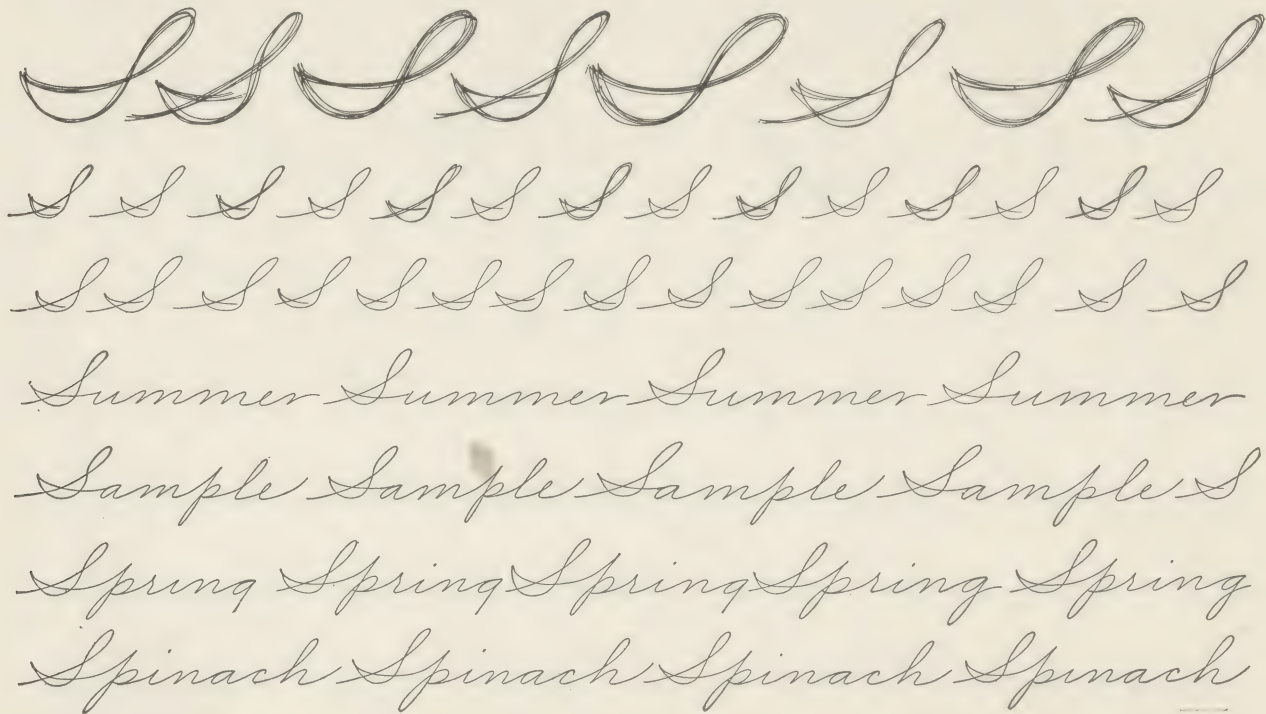 S S S S S S S S
S S S S S S S S S S S S S S
S S S S S S S S S S S S S S S
Summer Summer Summer Summer
Sample Sample Sample Sample S
Spring Spring Spring Spring Spring
Spinach Spinach Spinach Spinach